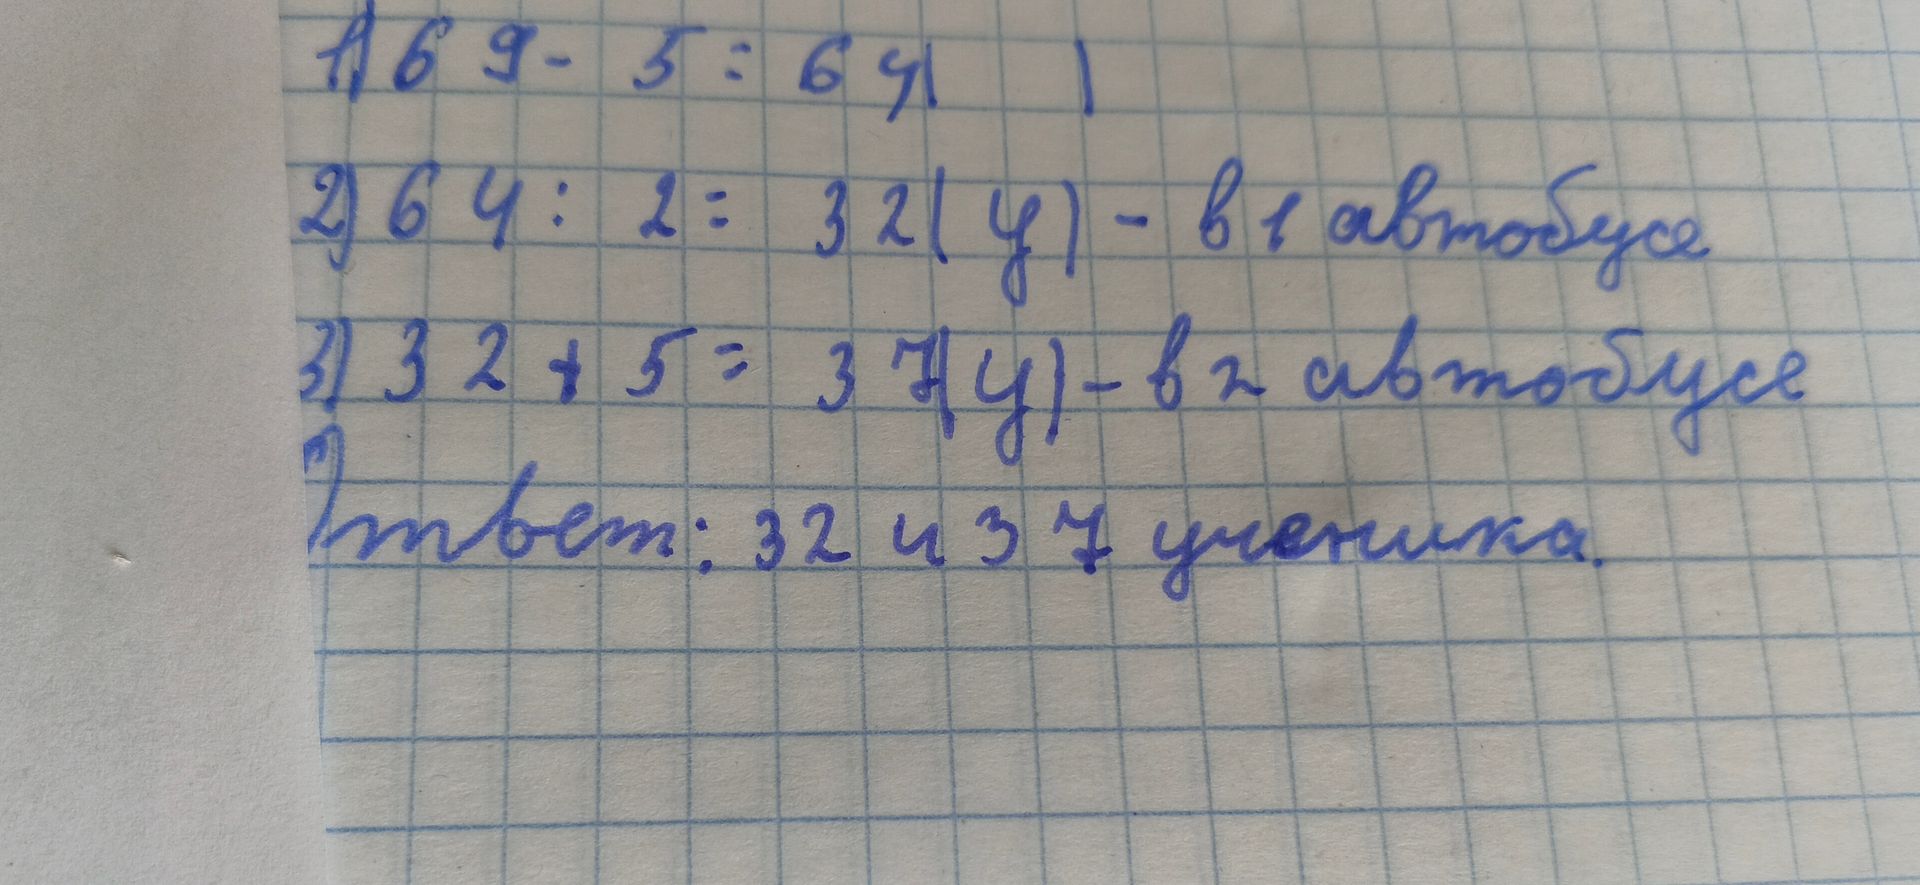 1) 69 - 5 = 64( )
2) 64 : 2 = 32(у) - в 1 автобусе
3) 32 + 5 = 37(у) - в 2 автобусе
Ответ: 32 и 37 ученика.